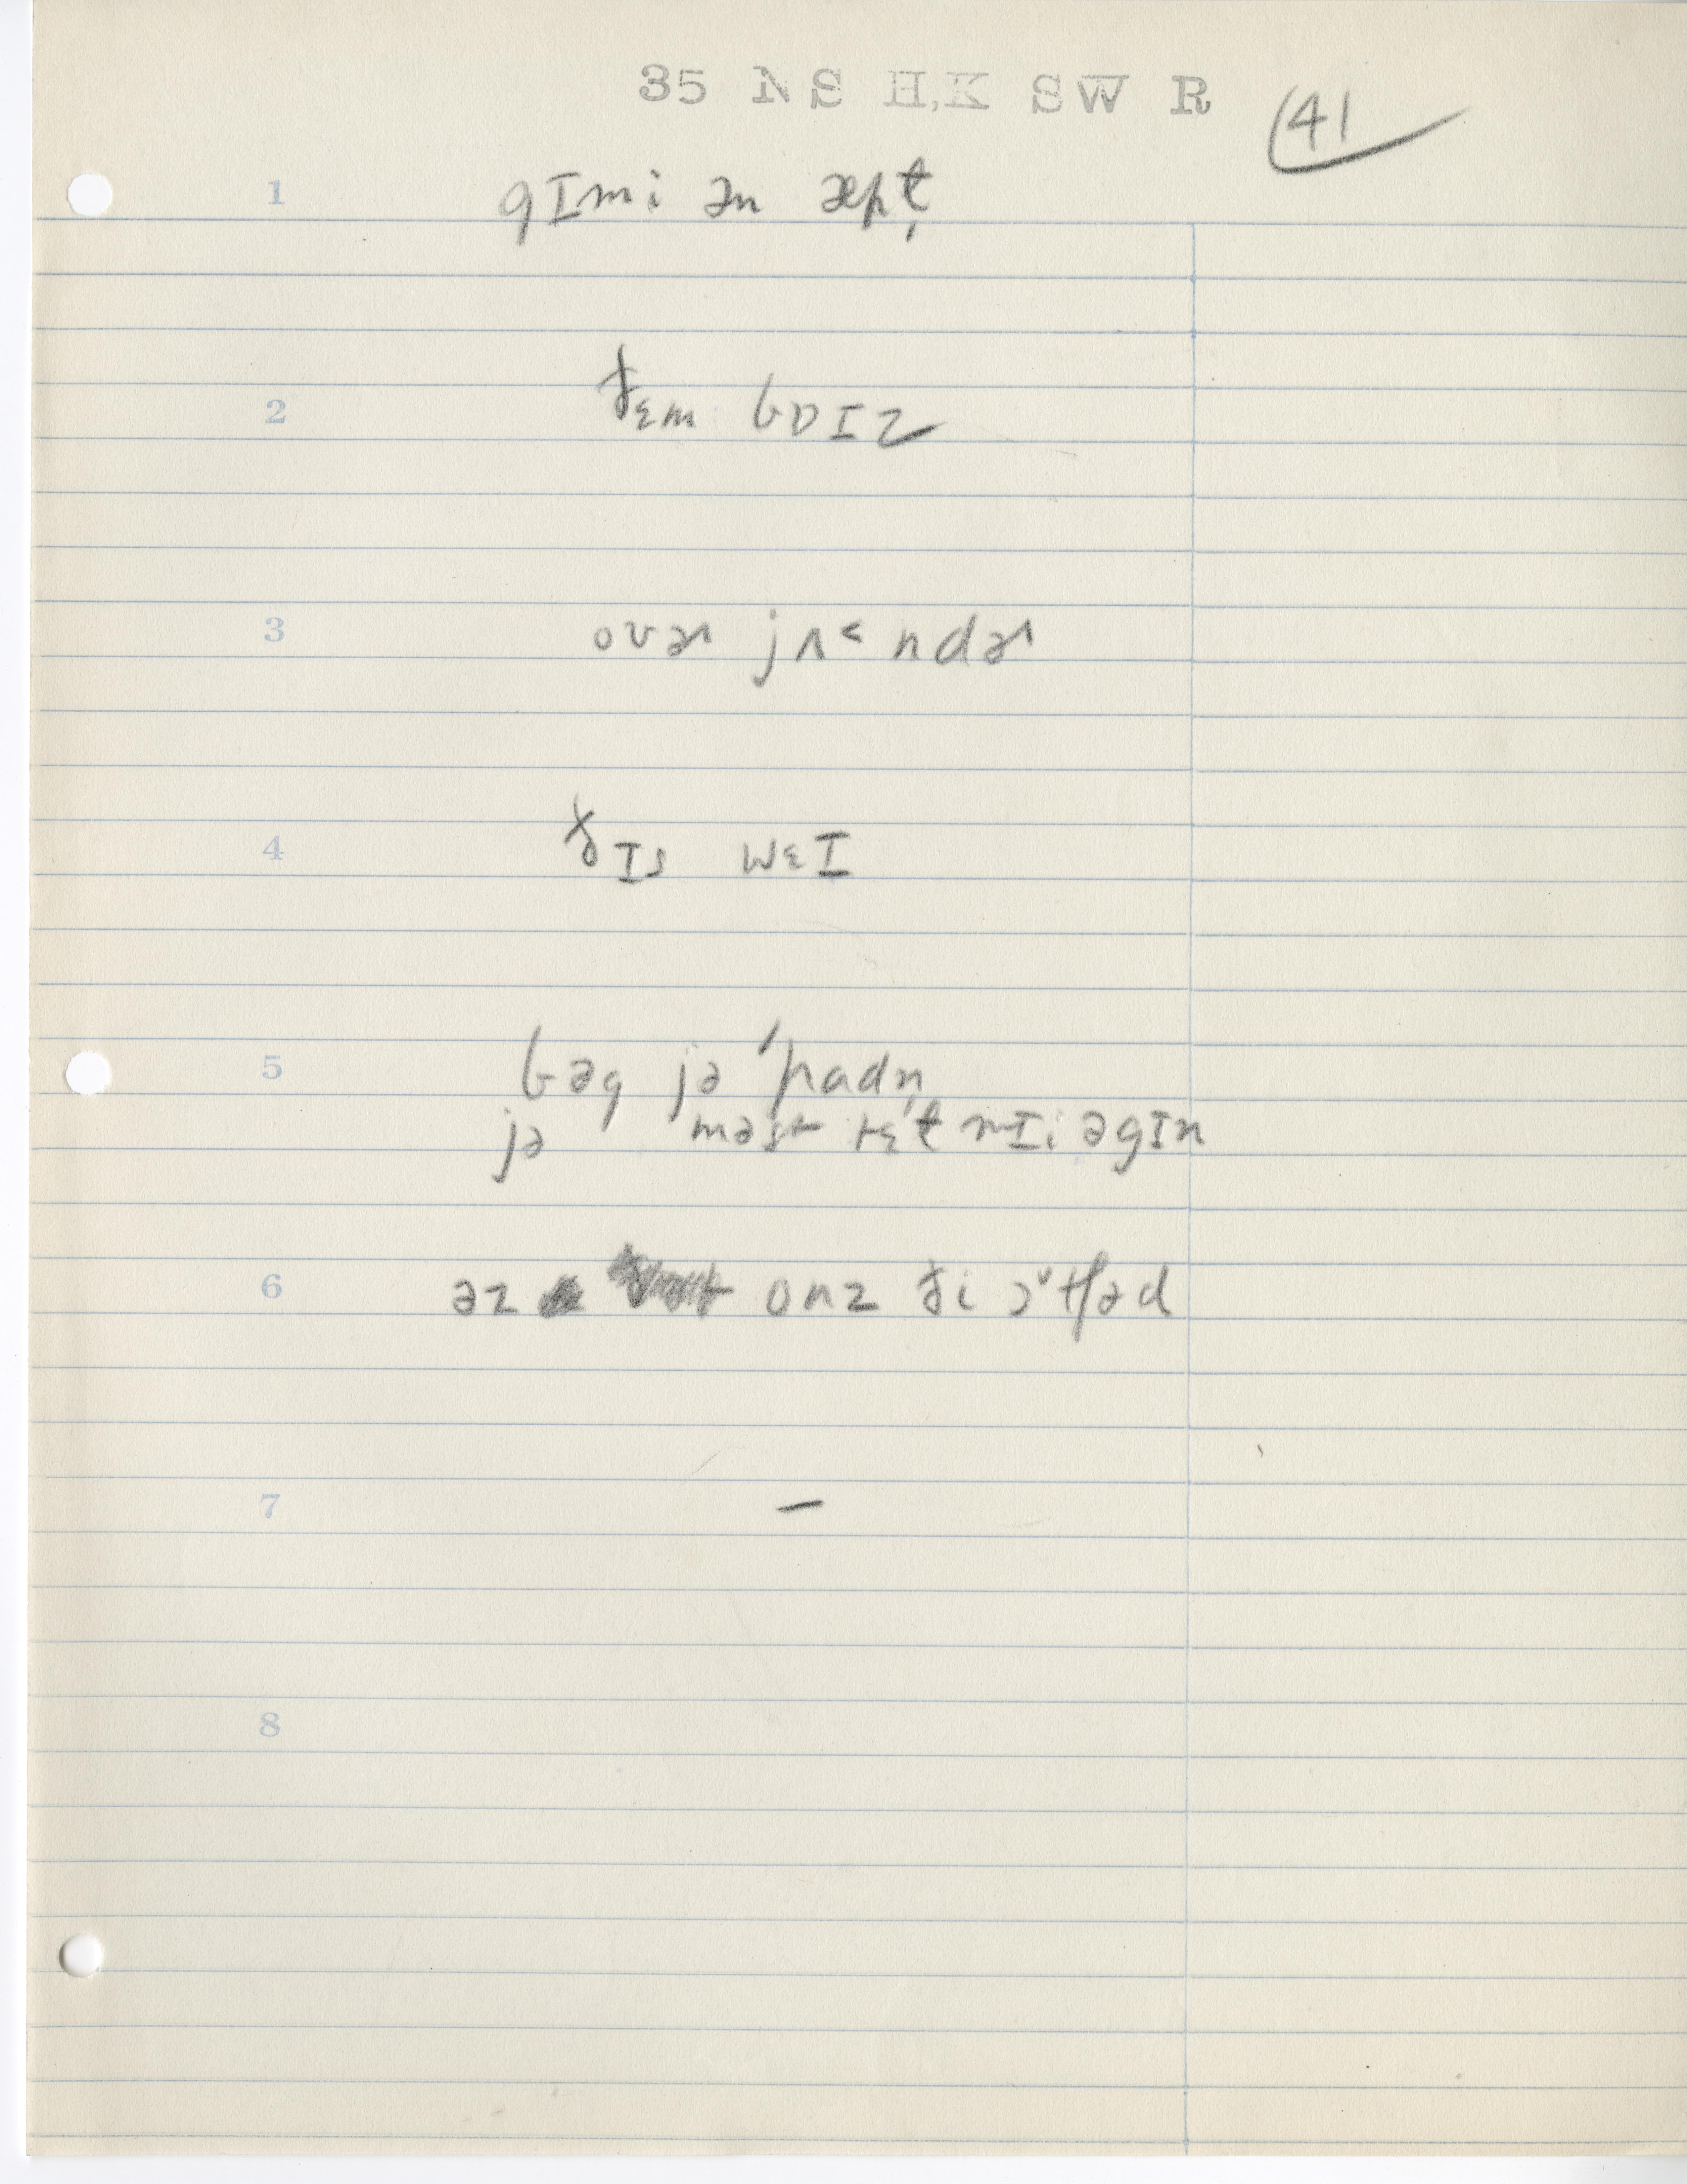 35 N S H,K S W R
41
1 gɪmi ən æpt̬
2 ðɛm bɒɪz
3 ovɚ jʌ˂ndɚ
4 ðɪs wɛɪ
5 bɛg jə ˈpadn̩
jə məst tɛ̨t mɪi əgɪn
6 əz onz ði ɔ˅tʃəd
7 –
8